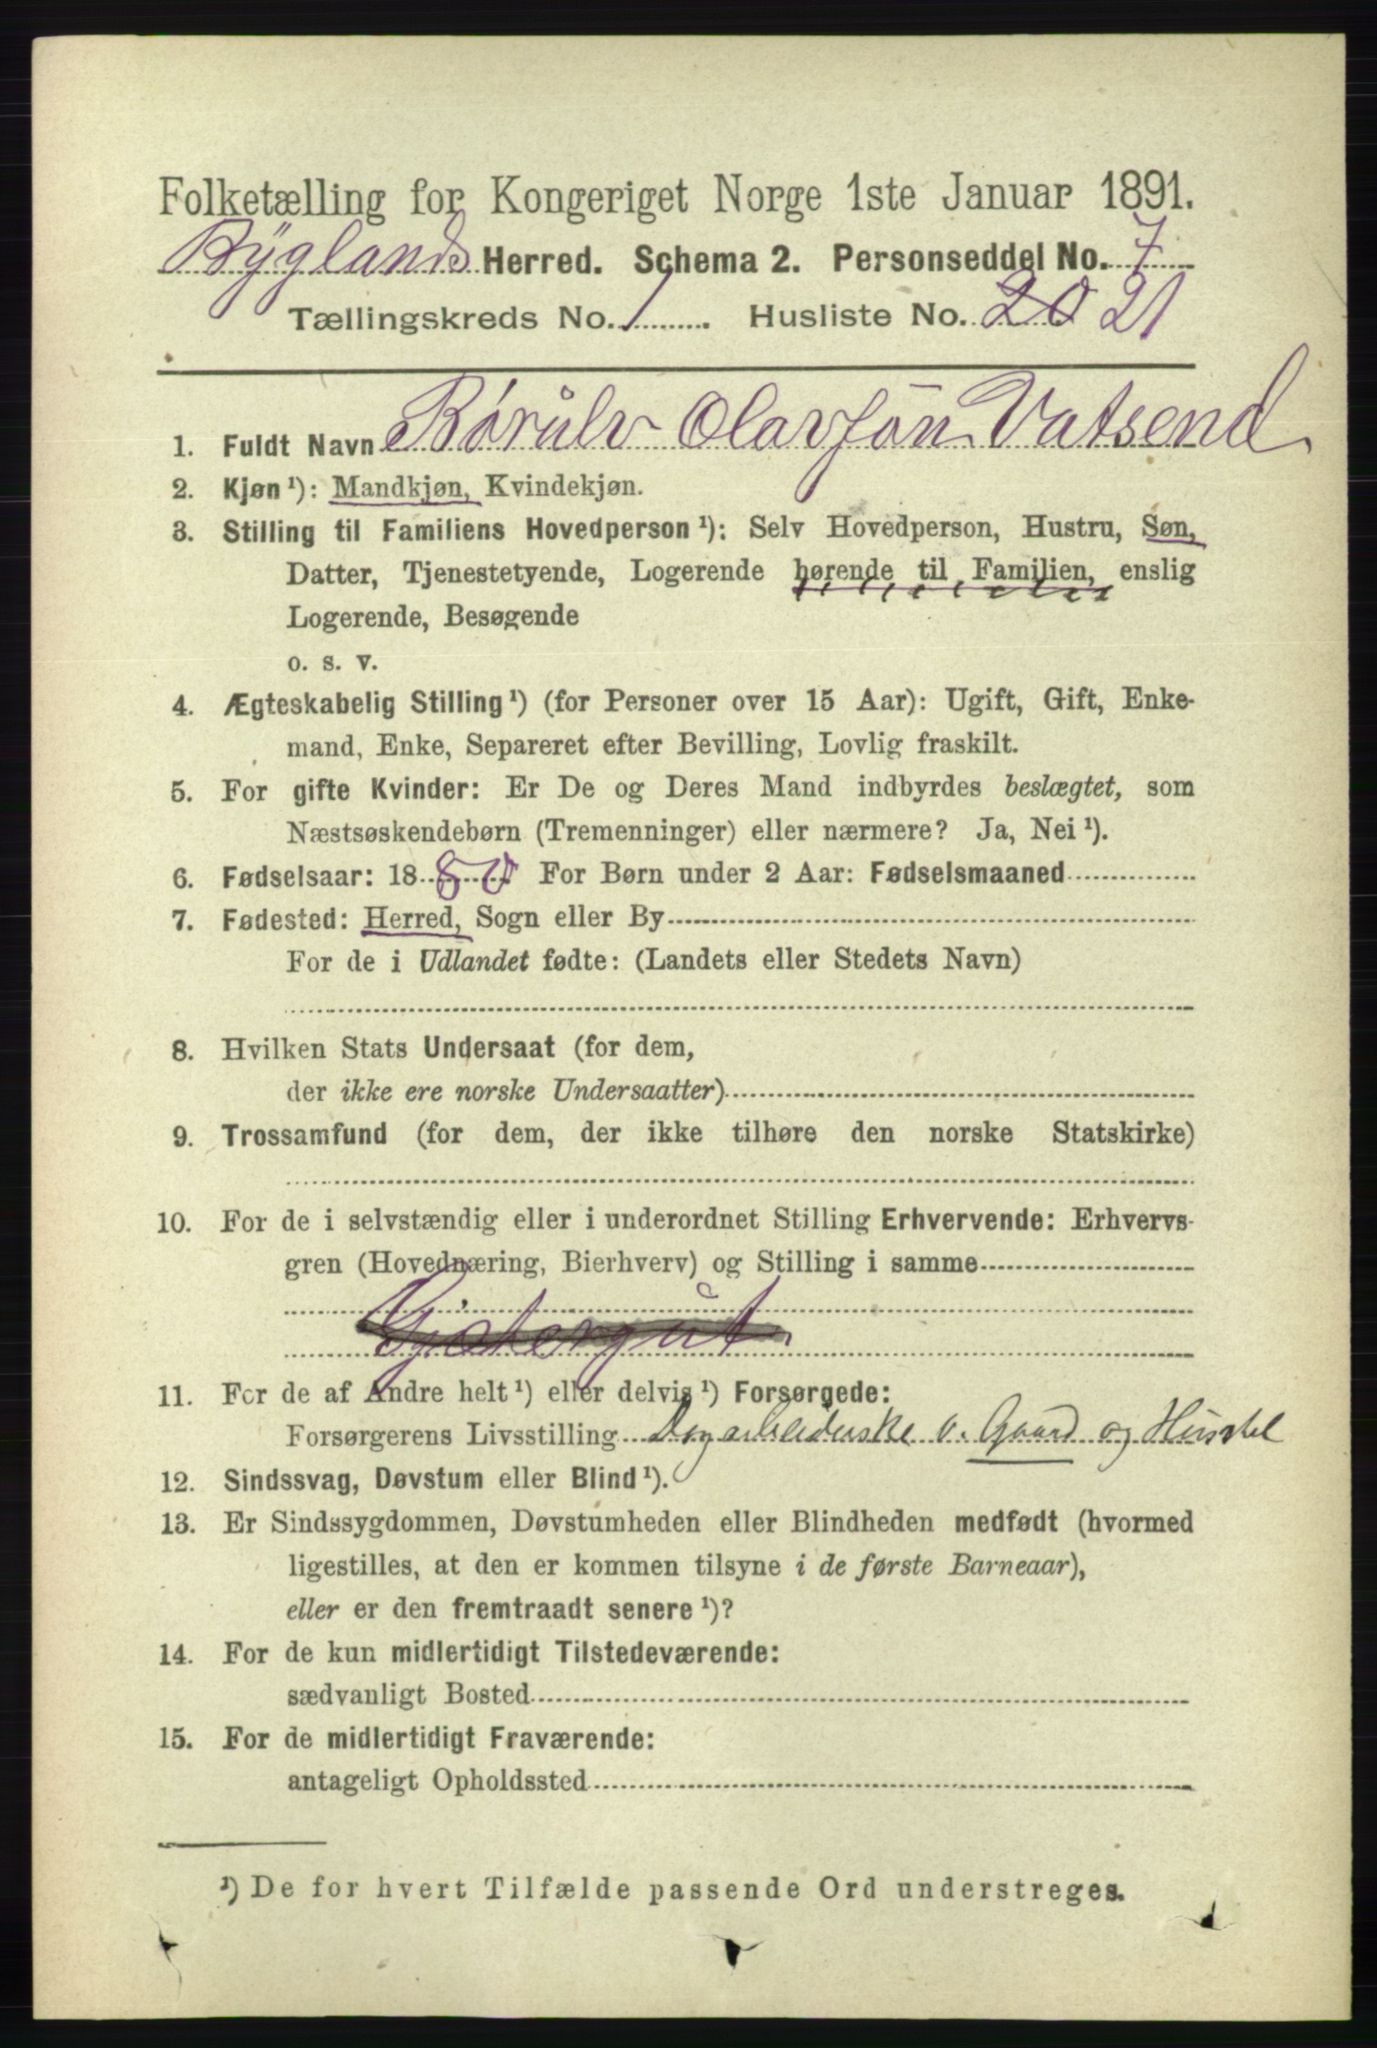 Folketælling for Kongeriget Norge 1ste Januar 1891.
Byglands Herred. Schema 2. Personseddel No. 7
Tællingskreds No. 1. Husliste No. 20 21
1. Fuldt Navn Børulv Olavsøn Vatsend
2. Kjøn¹): Mandkjøn, Kvindekjøn.
3. Stilling til Familiens Hovedperson¹): Selv Hovedperson, Hustru, Søn,
Datter, Tjenestetyende, Logerende hørende til Familien, enslig
Logerende, Besøgende
o. s. v.
4. Ægteskabelig Stilling¹) (for Personer over 15 Aar): Ugift, Gift, Enke-
mand, Enke, Separeret efter Bevilling, Lovlig fraskilt.
5. For gifte Kvinder: Er De og Deres Mand indbyrdes beslægtet, som
Næstsøskendebørn (Tremenninger) eller nærmere? Ja, Nei¹).
6. Fødselsaar: 18 80 For Børn under 2 Aar: Fødselsmaaned
7. Fødested: Herred, Sogn eller By
For de i Udlandet fødte: (Landets eller Stedets Navn)
8. Hvilken Stats Undersaat (for dem,
der ikke ere norske Undersaatter)
9. Trossamfund (for dem, der ikke tilhøre den norske Statskirke)
10. For de i selvstændig eller i underordnet Stilling Erhvervende: Erhvervs-
gren (Hovednæring, Bierhverv) og Stilling i samme
Gjætergut
11. For de af Andre helt¹) eller delvis¹) Forsørgede:
Forsørgerens Livsstilling Dagarbeiderske v. Gaard og Husstel
12. Sindssvag, Døvstum eller Blind¹).
13. Er Sindssygdommen, Døvstumheden eller Blindheden medfødt (hvormed
ligestilles, at den er kommen tilsyne i de første Barneaar),
eller er den fremtraadt senere¹)?
14. For de kun midlertidigt Tilstedeværende:
sædvanligt Bosted
15. For de midlertidigt Fraværende:
antageligt Opholdssted
¹) De for hvert Tilfælde passende Ord understreges.